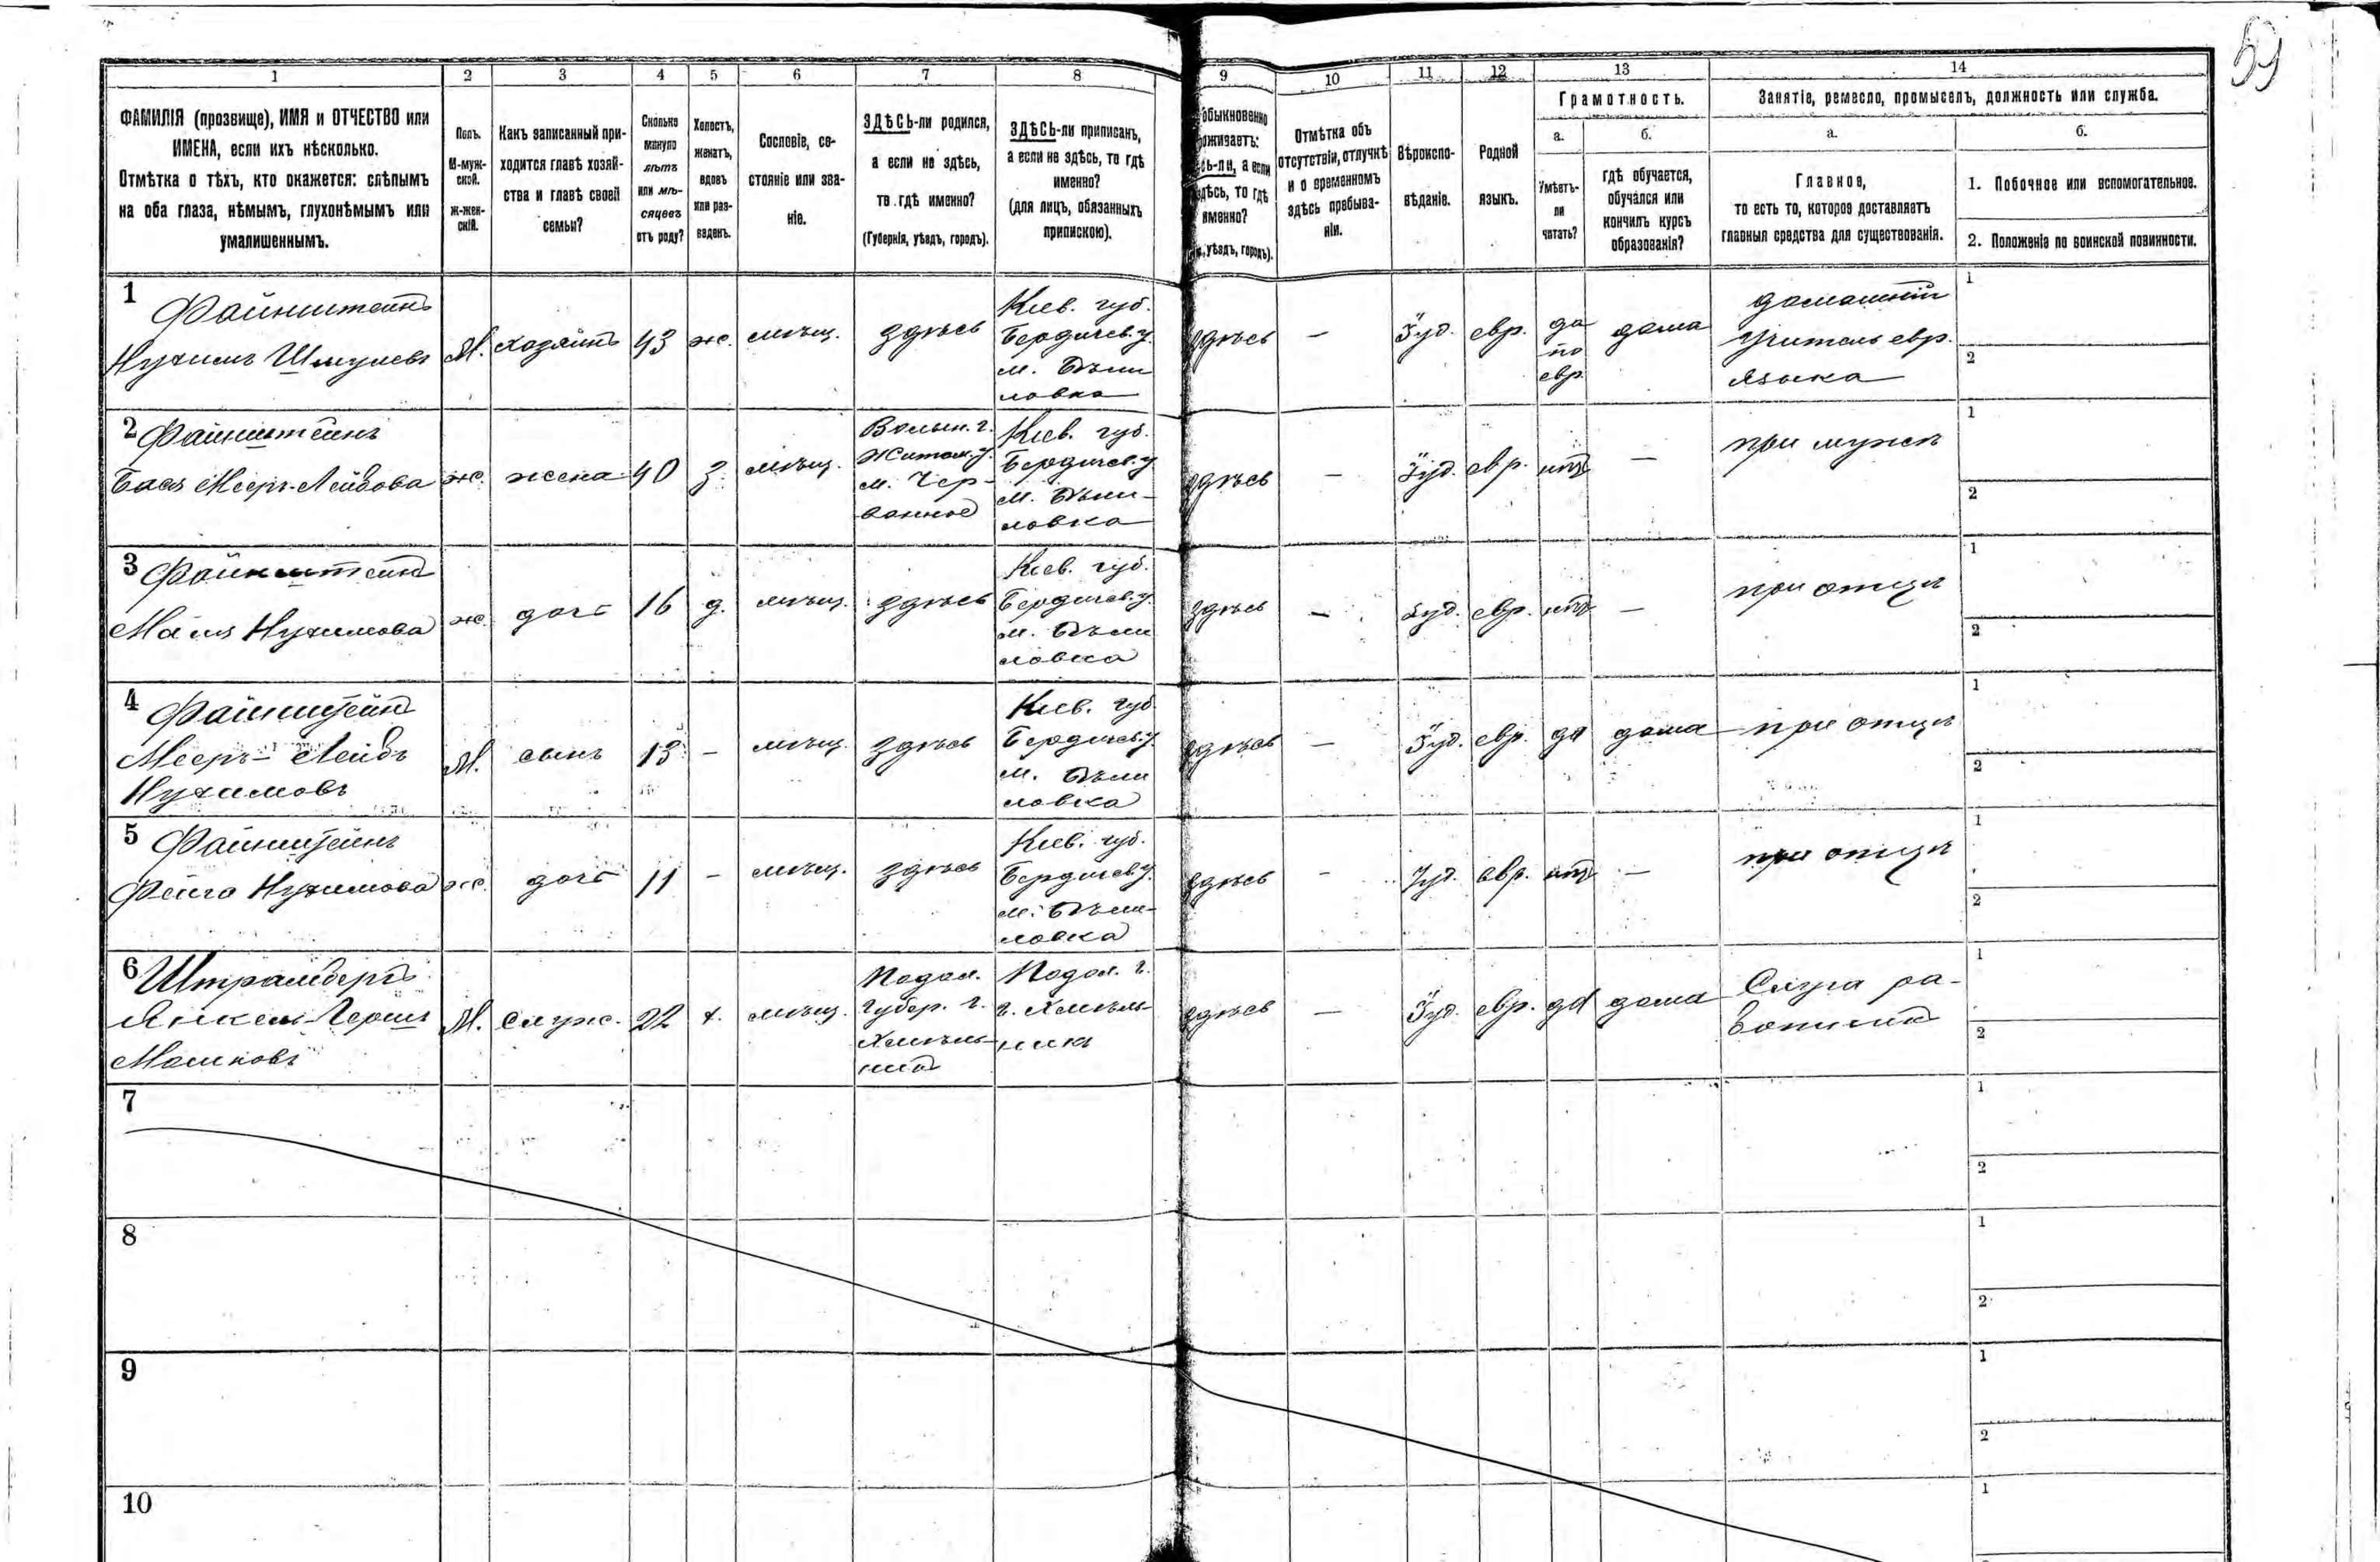 59
1 2 3 4 5 6 7 8 9 10 11 12 13 14
ФАМИЛІЯ (прозвище), ИМЯ и ОТЧЕСТВО или
ИМЕНА, если ихъ нѣсколько.
Отмѣтка о тѣхъ, кто окажется: слѣпымъ
на оба глаза, нѣмымъ, глухонѣмымъ или
умалишеннымъ.
Полъ.
М-муж-
ской.
ж-жен-
скій.
Какъ записанный при-
ходится главѣ хозяй-
ства и главѣ своей
семьи?
Сколько
минуло
лѣтъ
или мѣ-
сяцевъ
отъ роду?
Холостъ,
женатъ,
вдовъ
или раз-
веденъ.
Сословіе, со-
стояніе или зва-
ніе.
ЗДѢСЬ-ли родился,
а если не здѣсь,
то гдѣ именно?
(Губернія, уѣздъ, городъ).
ЗДѢСЬ-ли приписанъ,
а если не здѣсь, то гдѣ
именно?
(для лицъ, обязанныхъ
припискою).
обыкновенно
оживаетъ:
сь-ли, а если
дѣсь, то гдѣ
именно?
уѣздъ, городъ).
Отмѣтка объ
отсутствіи, отлучкѣ
и о временномъ
здѣсь пребыва-
ніи.
Вѣроиспо-
вѣданіе.
Родной
языкъ.
Грамотность.
а. б.
Умѣетъ-
ли
читать?
гдѣ обучается,
обучался или
кончилъ курсъ
образованія?
Занятіе, ремесло, промыселъ, должность или служба.
а. б.
Главное,
то есть то, которое доставляетъ
главныя средства для существованія.
1. Побочное или вспомогательное.
2. Положеніе по воинской повинности.
1
Файнштейнъ
Нухимъ Шмулевъ
М.
хозяинъ
43
ж.
мѣщ.
здѣсь
Кіев. губ.
Бердичев. у.
м. Бѣли
ловка
здѣсь
—
Іуд.
евр.
да
по
евр.
дома
домашній
учитель евр.
языка
1
2
2 Файнштейнъ
Бася Мееръ-Лейбова
ж.
жена
40
з.
мѣщ.
Волын. г.
Житом. у.
м. Чер-
вонное
Кіев. губ.
Бердичев. у.
м. Бѣли-
ловка
здѣсь
—
Іуд.
евр.
нѣтъ
—
при мужѣ
1
2
3 Файнштейнъ
Маля Нухимова
ж.
дочь
16
д.
мѣщ.
здѣсь
Кіев. губ.
Бердичев. у.
м. Бѣли
ловка
здѣсь
—
Іуд.
евр.
нѣтъ
—
при отцѣ
1
2
4 Файнштейнъ
Мееръ-Лейбъ
Нухимовъ
М.
сынъ
13
-
мѣщ.
здѣсь
Кіев. губ.
Бердичев. у.
м. Бѣли
ловка
здѣсь
—
Іуд.
евр.
да
дома
при отцѣ
1
2
5 Файнштейнъ
Фейга Нухимова
ж.
дочь
11
-
мѣщ.
здѣсь
Кіев. губ.
Бердичев. у.
м. Бѣли-
ловка
здѣсь
-
Іуд.
евр.
нѣтъ
—
при отцѣ
1
2
6 Штрамбергъ
Янкель-Гершъ
М.
служ.
22
х.
мѣщ.
Подол.
Губер. г.
Хмѣль-
никъ
Подол. г.
г. Хмѣль-
никъ
здѣсь
—
Іуд.
евр.
да
дома
Слуга ра-
ботникъ
1
2
7
1
2
8
1
2
9
1
2
10
1